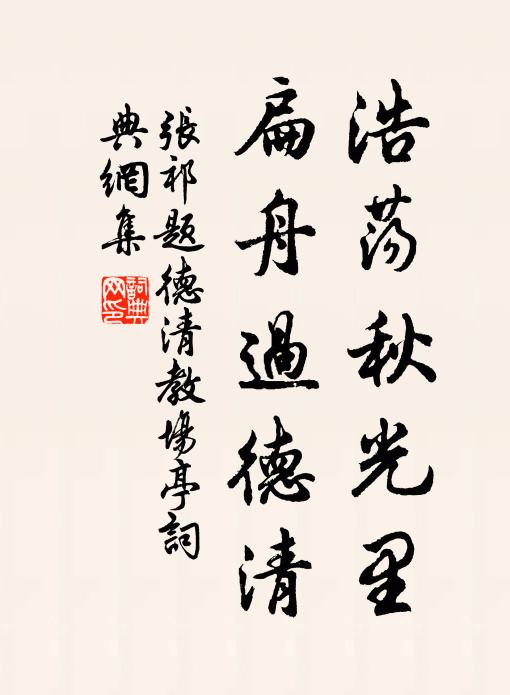 浩荡秋光里
扁舟過德清
張祁题德清教場亭詞
典網集
詞典網印